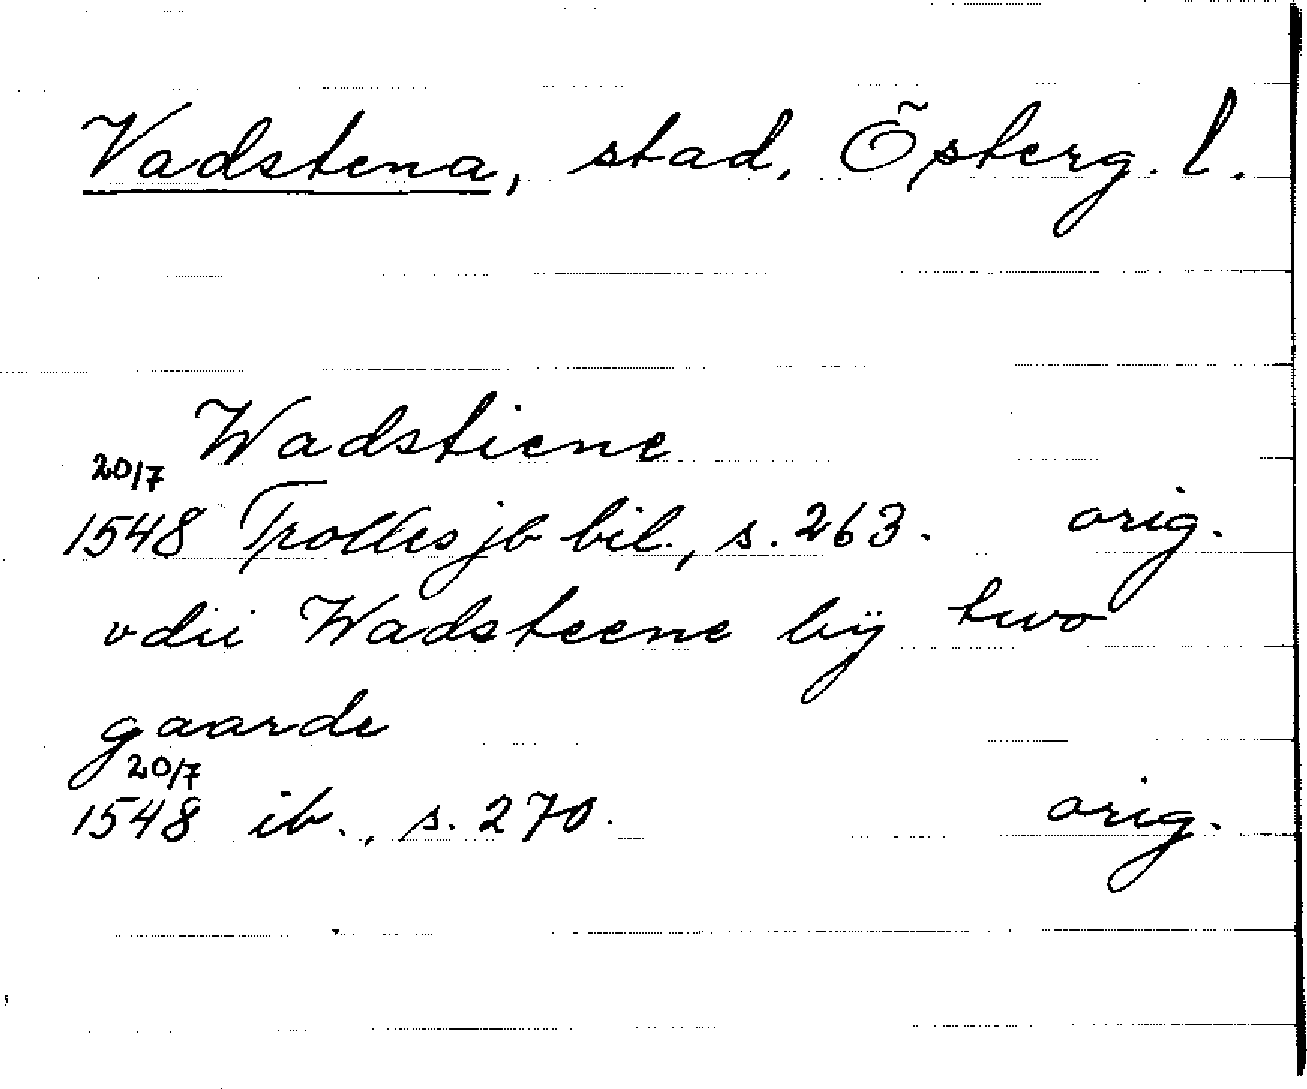 Vadstena, stad, Österg. l.
Wadstiene
20/7
1548 Trolles jb bil., s. 263. orig.
vdii Wadsteene bÿ two
gaarde
20/7
1548 ib., s. 270. orig.